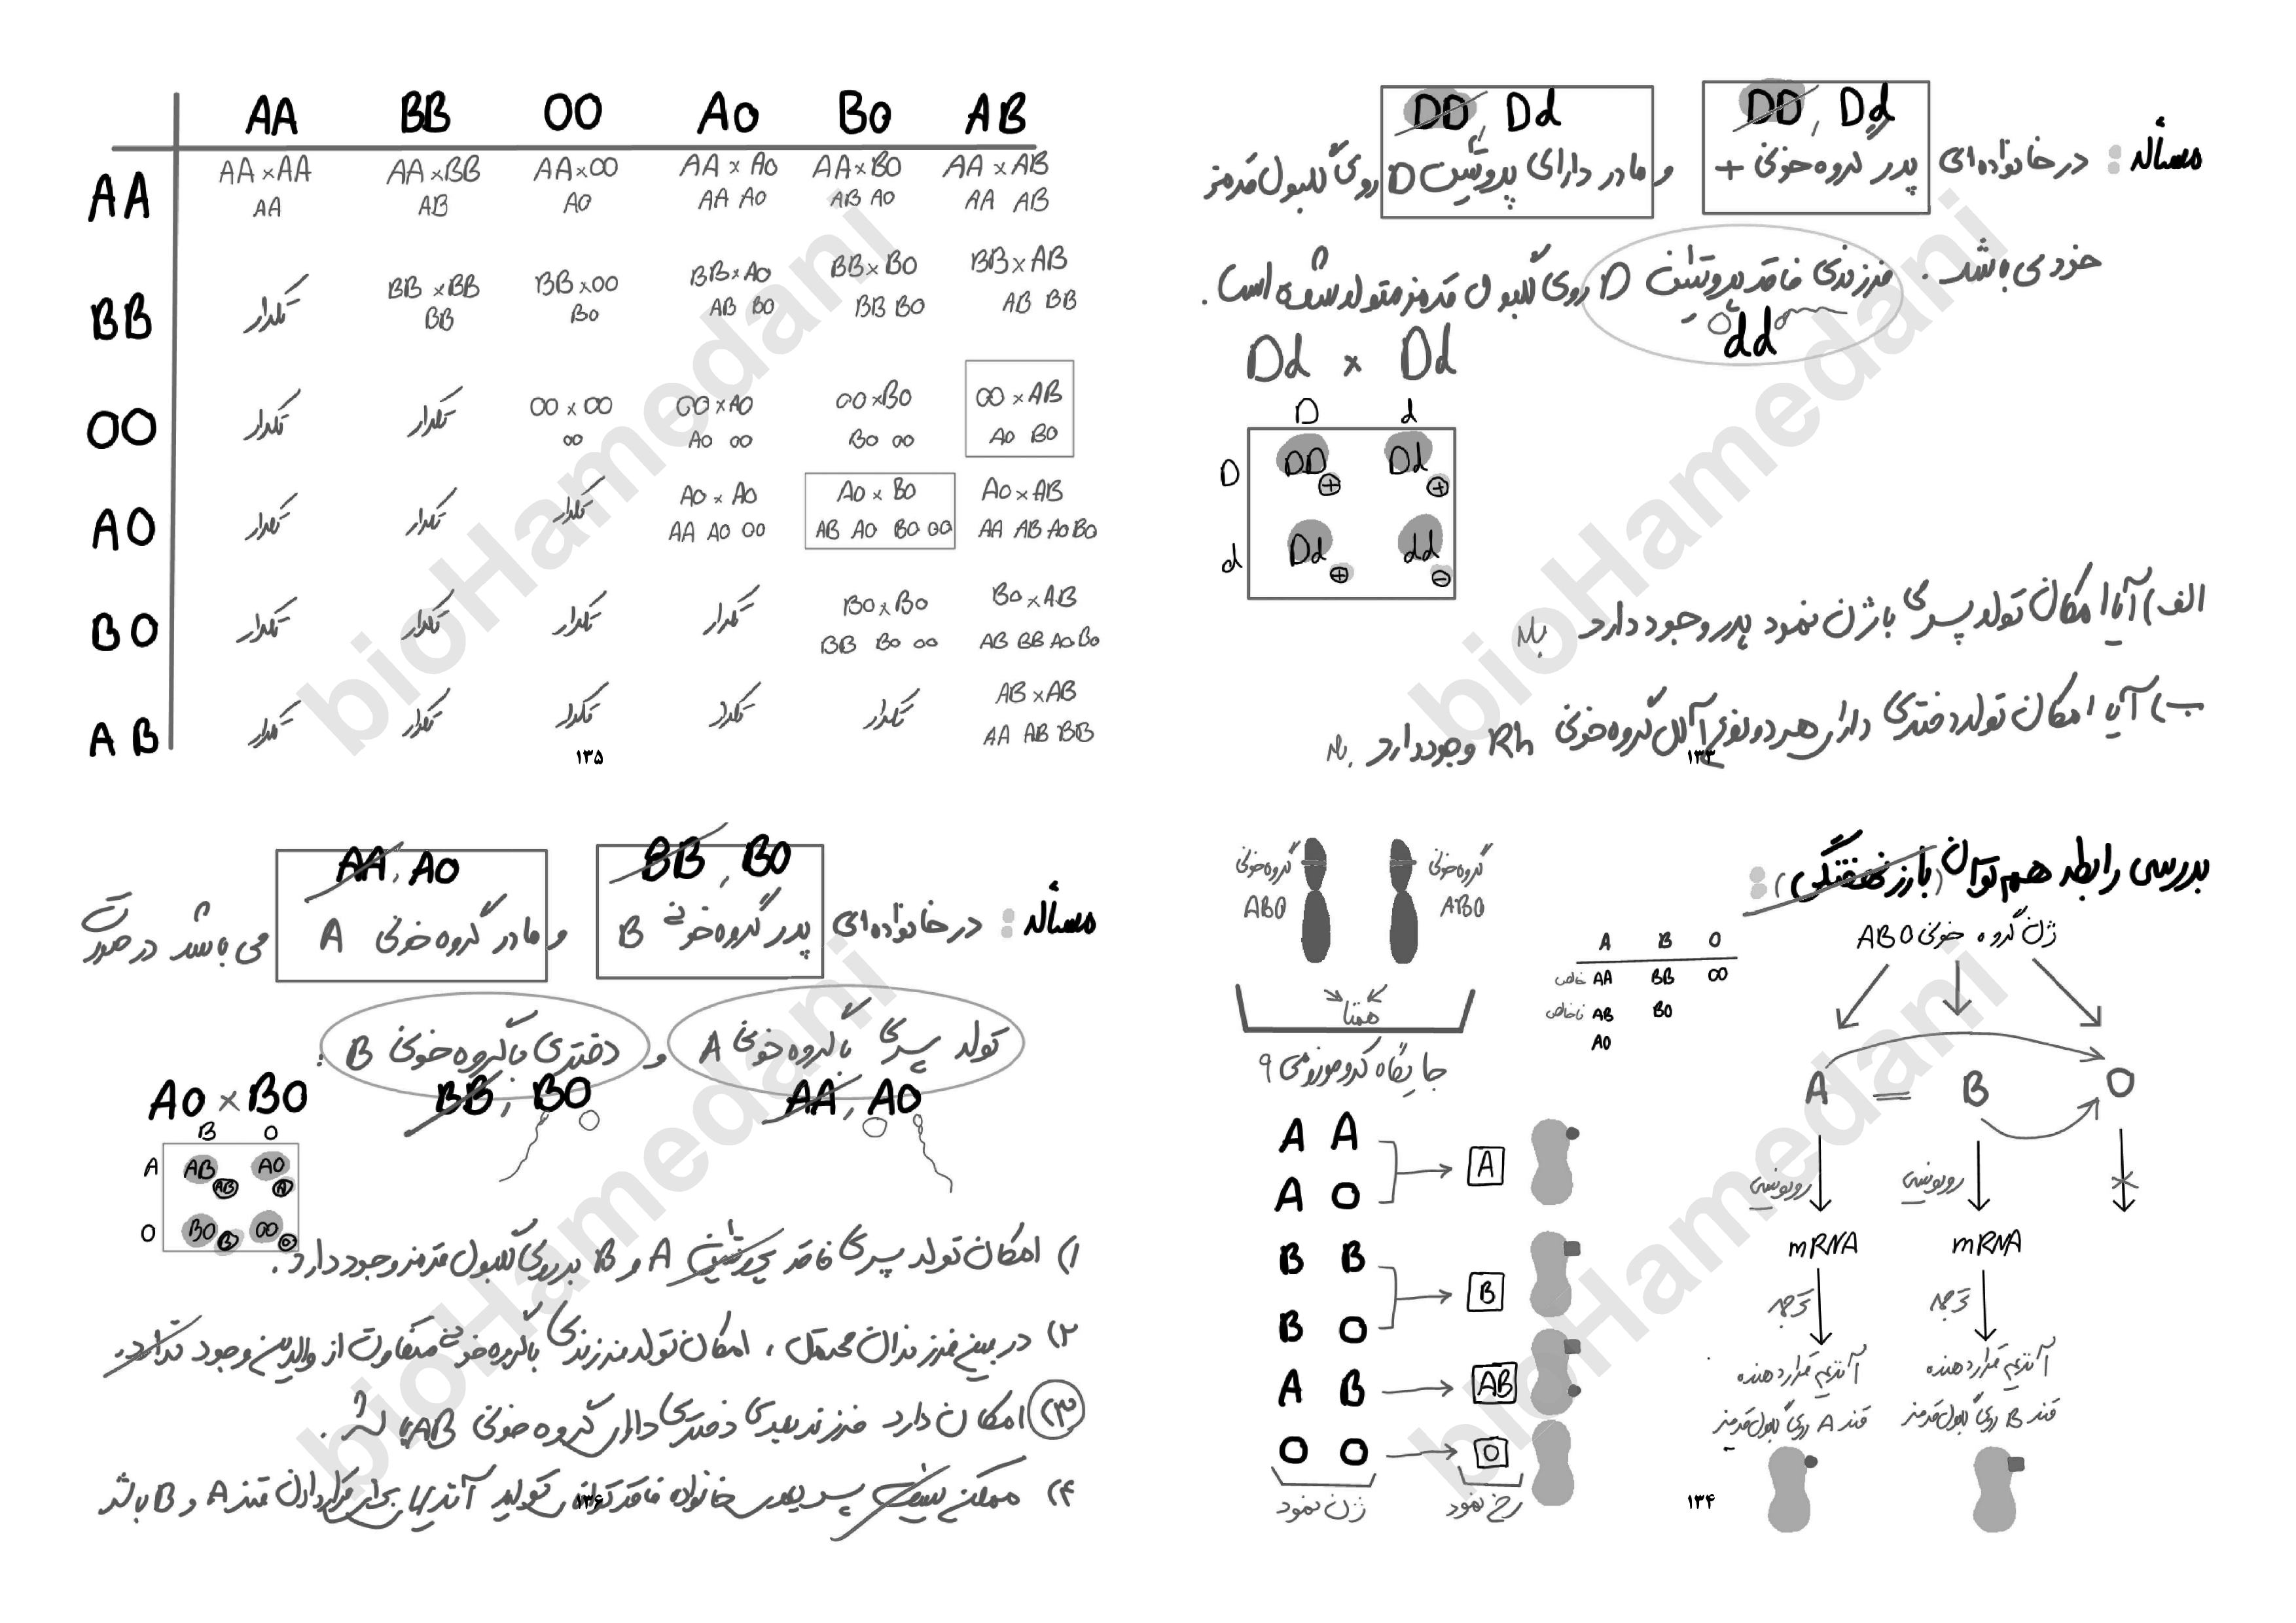 مسأله : در خانواده‌ای پدر گروه خونی + و مادر دارای پروتئین D روی گلبول قرمز
DD , Dd
DD , Dd
خود می باشد . فرزندی فاقد پروتئین D روی گلبول قرمز متولد شده است .
dd
Dd × Dd
D d
D DD + Dd +
d Dd + dd -
الف) آیا امکان تولد پسری با ژن نمود پدر وجود دارد بله
ب) آیا امکان تولد دختری دارای هر دو نوع آلل گروه خونی Rh وجود دارد بله
۱۳۳
بررسی رابطه هم توان (بارز نهفتگی) :
ژن گروه خونی ABO
A = B O
رونویسی رونویسی
mRNA mRNA
ترجمه ترجمه
آنزیم قرار دهنده آنزیم قرار دهنده
قند A روی گلبول قرمز قند B روی گلبول قرمز
A B O
خالص AA BB OO
ناخالص AB BO
AO
گروه خونی گروه خونی
ABO ABO
همتا
جایگاه کروموزومی ۹
A A
A O
A
B B
B O
B
A B AB
O O O
ژن نمود رخ نمود
۱۳۴
AA BB OO AO BO AB
AA AA×AA AA×BB AA×OO AA×AO AA×BO AA×AB
AA AB AO AA AO AB AO AA AB
BB تکرار BB×BB BB×OO BB×AO BB×BO BB×AB
BB BO AB BO BB BO AB BB
OO تکرار تکرار OO×OO OO×AO OO×BO OO×AB
OO AO OO BO OO AO BO
AO تکرار تکرار تکرار AO×AO AO×BO AO×AB
AA AO OO AB AO BO OO AA AB AO BO
BO تکرار تکرار تکرار تکرار BO×BO BO×AB
BB BO OO AB BB AO BO
AB تکرار تکرار تکرار تکرار تکرار AB×AB
AA AB BB
۱۳۵
BB , BO
AA , AO
مسأله : در خانواده‌ای پدر گروه خونی B و مادر گروه خونی A می باشد در صورت
تولد پسری با گروه خونی A و دختری با گروه خونی B :
AA , AO
BB , BO
AO × BO
B O
A AB AB AO A
O BO B OO O
۱) امکان تولد پسری فاقد پروتئین A و B بر روی گلبول قرمز وجود دارد .
۲) در بین فرزندان محتمل ، امکان تولد فرزندی با گروه خونی متفاوت از والدین وجود ندارد.
۳) امکان دارد فرزند بعدی دختری دارای گروه خونی AB باشد .
۴) ممکن نیست پسر بعدی خانواده فاقد توانایی تولید آنزیم برای قرار دادن قند A و B باشد
۱۳۶
bioHamedani
bioHamedani
bioHamedani
bioHamedani